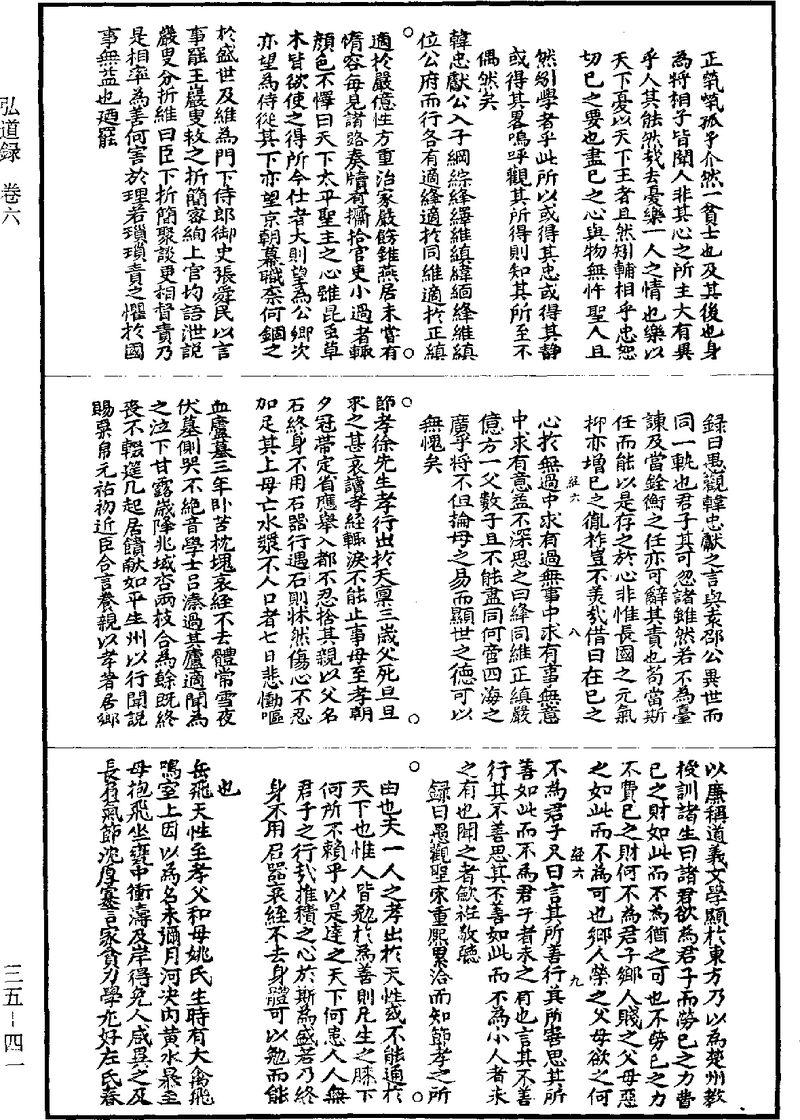 弘道録 卷六
三五-四一
正煢煢孤孑介然一貧士也及其後也身
為將相子皆聞人非其心之所主大有異
乎人其能然哉夫憂樂一人之情也樂以
天下憂以天下王者且然矧輔相乎忠恕
切己之要也盡己之心與物無忤聖人且
然矧學者乎此所以或得其忠或得其静
或得其畧嗚呼觀其所得則知其所至不
偶然矣
韓忠獻公八子綱綜絳繹維縝緯緬絳維縝
位公府而行各有適絳適於同維適於正縝
適於嚴億性方重治家嚴飭雖燕居未嘗有
惰容每見諸路奏牘有攟拾官吏小過者輒
顔色不懌曰天下太平聖主之心雖昆蟲草
木皆欲使之得所今仕者大則望為公卿次
亦望為侍從其下亦望京朝幕職柰何錮之
於盛世及維為門下侍郎御史張舜民以言
事罷王巖叟救之折簡密絢上官均語泄説
巖叟分折維曰臣下折簡聚談更相督責乃
是相率為善何害於理若瑣瑣責之懼於國
事無益也廼罷
録曰愚觀韓忠獻之言與袁邵公異世而
同一軌也君子其可忽諸雖然若不為臺
諫及當銓衡之任亦可辭其責也苟當斯
任而能以是存之於心非惟長國之元氣
抑亦增己之胤祚豈不美哉惜曰在己之
心於無過中求有過無事中求有事無意
中求有意益不深思之曰絳同維正縝嚴
億方一父數子且不能盡同何啻四海之
廣乎將不但掄母之易而顯世之德可以
無愧矣
經六 八
節孝徐先生孝行出於天禀三歲父死旦旦
求之甚哀讀孝經輒淚不能止事母至孝朝
夕冠帶定省應舉入都不忍捨其親以父名
石終身不用石器行遇石則怵然傷心不忍
加足其上母亡水漿不入口者七日悲慟嘔
血廬墓三年卧苫枕塊衰絰不去體常雪夜
伏墓側哭不絶音學士吕溱過其廬適聞為
之泣下甘露歲降兆域杏兩枝合為榦既終
喪不輟筵几起居饋獻如平生州以行聞説
賜粟帛元祐初近臣合言養親以孝著居鄉
以廉稱道義文學顯於東方乃以為楚州教
授訓諸生曰諸君欲為君子而勞己之力費
己之財如此而不為猶之可也不勞己之力
不費己之財何不為君子鄉人賤之父母惡
之如此而不為可也鄉人榮之父母欲之何
不為君子又曰言其所善行其所善思其所
善如此而不為君子者未之有也言其不善
行其不善思其不善如此而不為小人者未
之有也聞之者歛袵敬聽
經六 九
録曰愚觀聖宋重熙累洽而知節孝之所
由也夫一人之孝出於天性或不能通於
天下也惟人皆勉於為善則凡生之膝下
何所不賴乎以是達之天下何患人人無
君子之行哉推積之心於斯為盛若乃終
身不用石器衰絰不去身體可以勉而能
也
岳飛天性至孝父和母姚氏生時有大禽飛
鳴室上因以為名未彌月河决内黄水暴至
母抱飛坐甕中衝濤及岸得免人咸異之及
長負氣節沈厚寡言家貧力學尤好左氏春